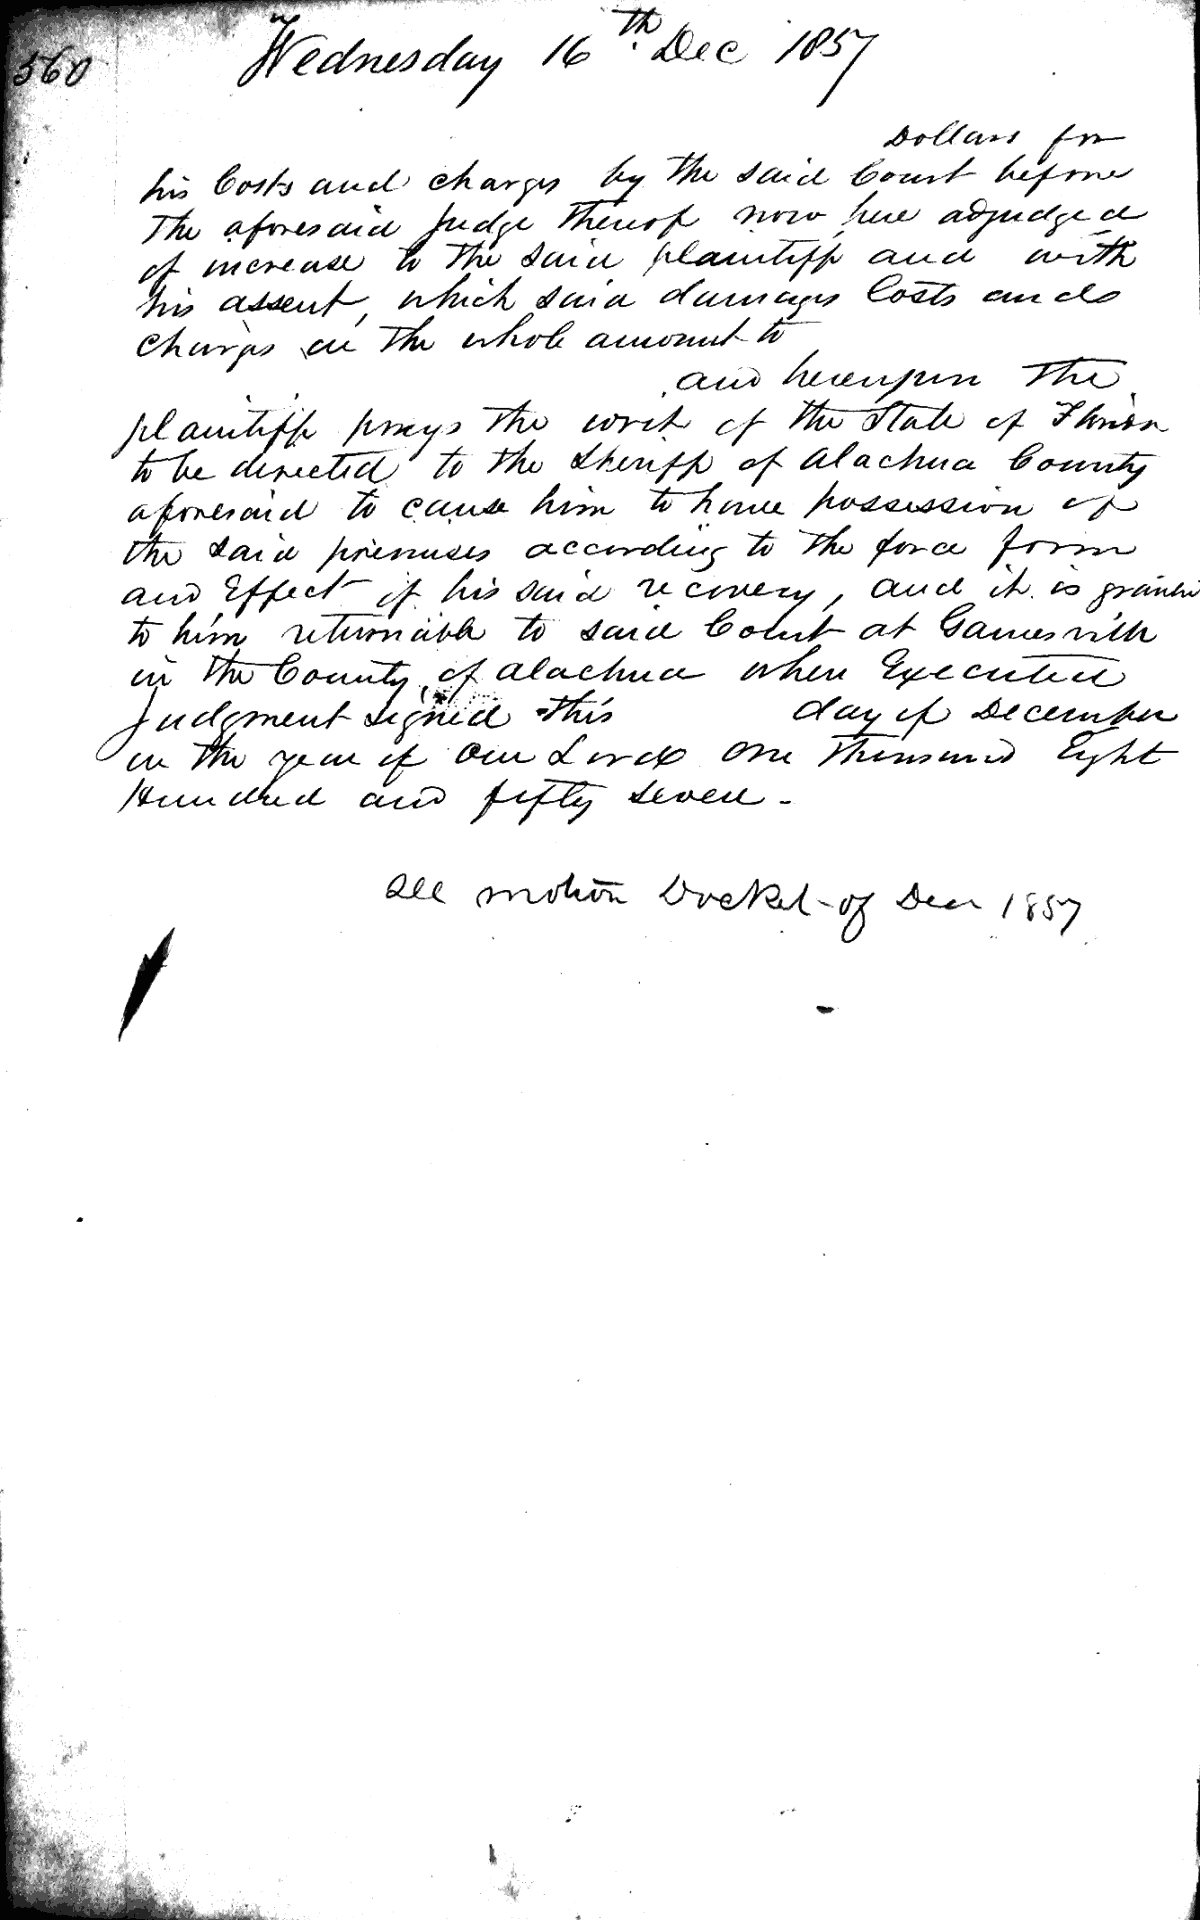 560
Wednesday 16th Dec 1857
Dollars for
his Costs and charges by the said Court before
the aforesaid Judge thereof now here adjudged
of increase to the said plaintiff and with
his assent, which said damages Costs and
Charges in the whole amount to
and hereupon the
plaintiff prays the writ of the State of Florida
to be directed to the Sheriff of Alachua County
aforesaid to cause him to have possession of
the said premises according to the force form
and Effect of his said recovery, and it is granted
to him returnable to said Court at Gainesville
in the County of Alachua when Executed
Judgment signed this day of December
in the year of our Lord One Thousand Eight
Hundred and fifty seven -
See motion Docket of Decr 1857